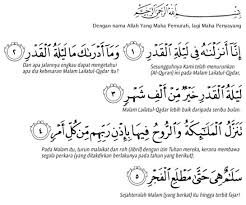 بسم الله الرحمن الرحيم
Dengan nama Allah Yang Maha Pemurah, lagi Maha Penyayang
إِنَّا أَنزَلْنَاهُ فِي لَيْلَةِ الْقَدْرِ ١ وَمَا أَدْرَاكَ مَا لَيْلَةُ الْقَدْرِ ٢
Sesungguhnya Kami telah menurunkan (Al-Quran) ini pada Malam Lailatul-Qadar,
Dan apa jalannya engkau dapat mengetahui apa dia kebesaran Malam Lailatul-Qadar itu?
لَيْلَةُ الْقَدْرِ خَيْرٌ مِّنْ أَلْفِ شَهْرٍ ٣
Malam Lailatul-Qadar lebih baik daripada seribu bulan.
تَنَزَّلُ الْمَلَائِكَةُ وَالرُّوحُ فِيهَا بِإِذْنِ رَبِّهِم مِّن كُلِّ أَمْرٍ ٤
Pada Malam itu, turun malaikat dan roh (Jibril) dengan izin Tuhan mereka, kerana membawa
segala perkara (yang ditakdirkan berlakunya pada tahun yang berikut).
سَلَامٌ هِيَ حَتَّىٰ مَطْلَعِ الْفَجْرِ ٥
Sejahteralah Malam (yang berkat) itu hingga terbit fajar!